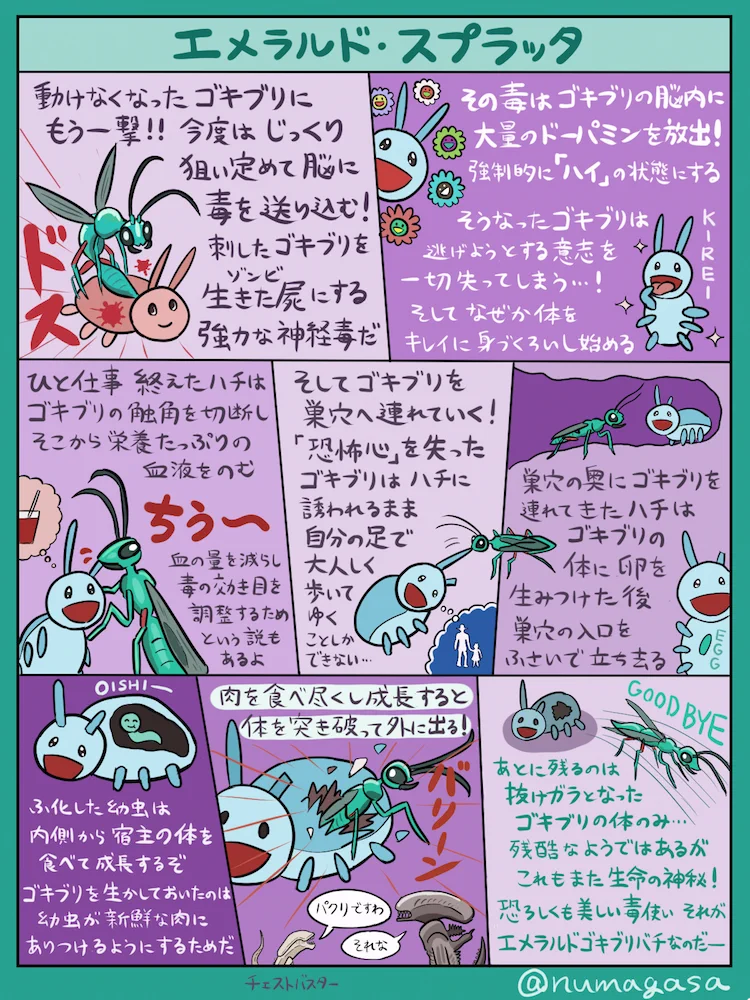 エメラルド・スプラッタ
動けなくなったゴキブリに
もう一撃!! 今度はじっくり
狙い定めて脳に
毒を送り込む!
刺したゴキブリを
ゾンビ
生きた屍にする
強力な神経毒だ
ドス
その毒はゴキブリの脳内に
大量のドーパミンを放出!
強制的に「ハイ」の状態にする
そうなったゴキブリは
逃げようとする意志を
一切失ってしまう…!
そしてなぜか体を
キレイに身づくろいし始める
KIREI
ひと仕事 終えたハチは
ゴキブリの触角を切断し
そこから栄養たっぷりの
血液をのむ
ちぅ〜
血の量を減らし
毒の効き目を
調整するため
という説も
あるよ
そしてゴキブリを
巣穴へ連れていく!
「恐怖心」を失った
ゴキブリはハチに
誘われるまま
自分の足で
大人しく
歩いて
ゆく
ことしか
できない…
巣穴の奥にゴキブリを
連れてきたハチは
ゴキブリの
体に卵を
生みつけた後
巣穴の入口を
ふさいで立ち去る
EGG
OISHIー
ふ化した幼虫は
内側から宿主の体を
食べて成長するぞ
ゴキブリを生かしておいたのは
幼虫が新鮮な肉に
ありつけるようにするためだ
肉を食べ尽くし成長すると
体を突き破って外に出る!
バリーン
パクリですわ
それな
チェストバスター
GOODBYE
あとに残るのは
抜けガラとなった
ゴキブリの体のみ…
残酷なようではあるが
これもまた生命の神秘!
恐ろしくも美しい毒使い それが
エメラルドゴキブリバチなのだー
@numagasa